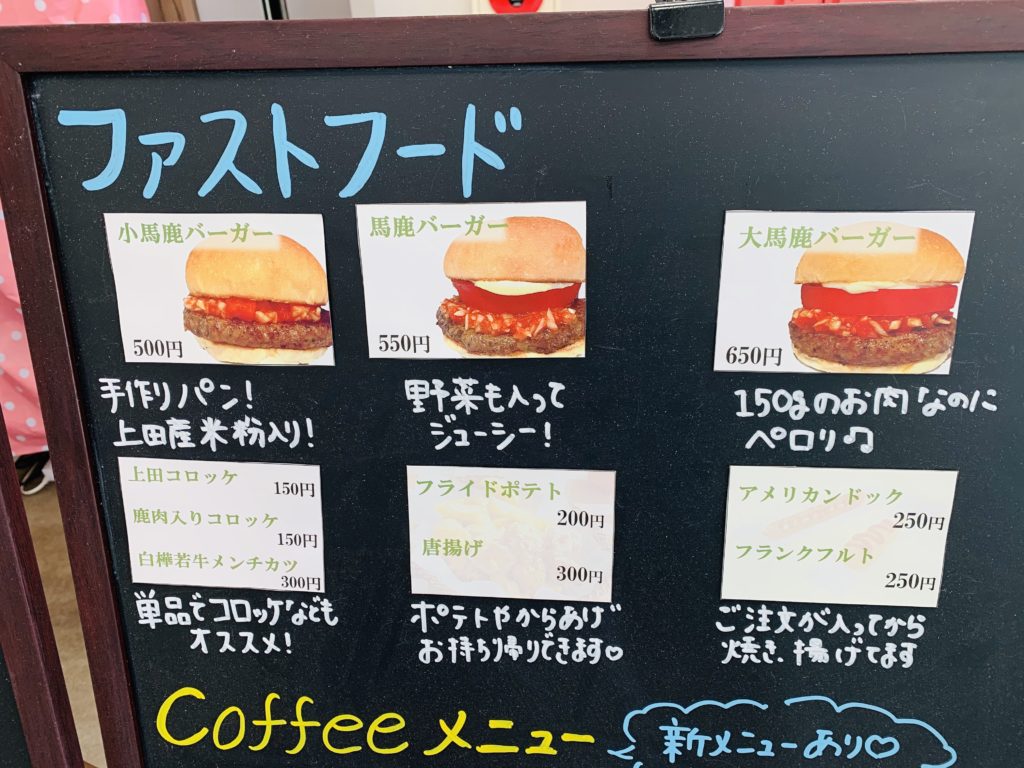 ファストフード
小馬鹿バーガー
500円
手作りパン!
上田産米粉入り!
馬鹿バーガー
550円
野菜も入って
ジューシー!
大馬鹿バーガー
650円
150gのお肉なのに
ペロリ♫
上田コロッケ
150円
鹿肉入りコロッケ
150円
白樺若牛メンチカツ
300円
単品でコロッケなども
オススメ!
フライドポテト
200円
唐揚げ
300円
ポテトやからあげ
お持ち帰りできます♡
アメリカンドック
250円
フランクフルト
250円
ご注文が入ってから
焼き、揚げてます
Coffee メニュー
新メニューあり♡